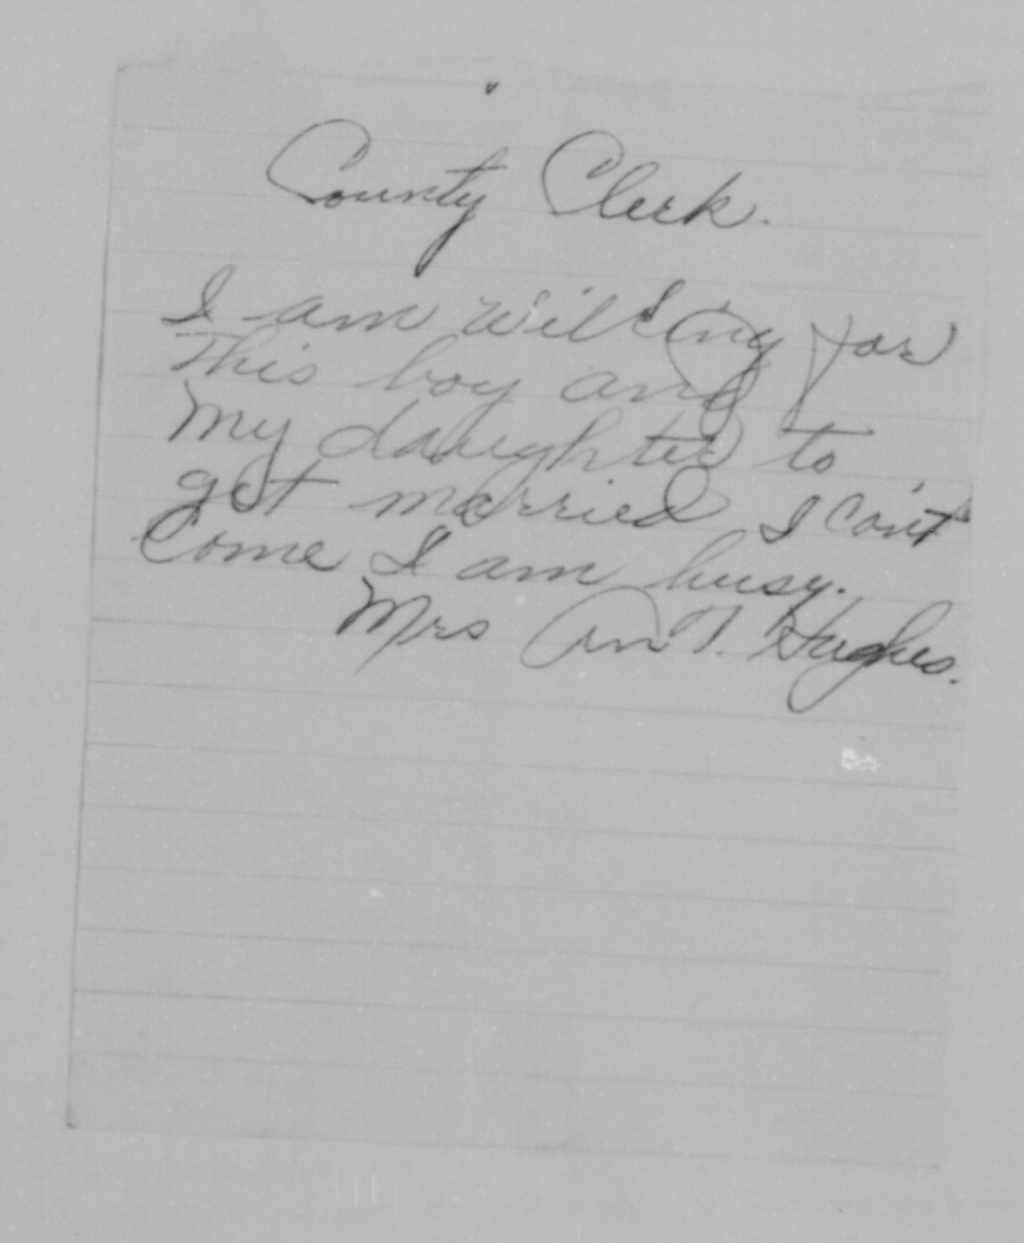 County Clerk.
I am willing for
This boy and
My daughter to
get married I can't
Come I am busy.
Mrs An T. Hughes.